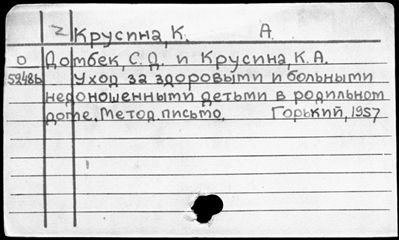 2 Крусина, К. А.
О Домбек, С.Д. и Крусина, К.А.
5248ь Уход за здоровыми и больными
недоношенными детьми в родильном
доме. Метод. письмо. Горький, 1957